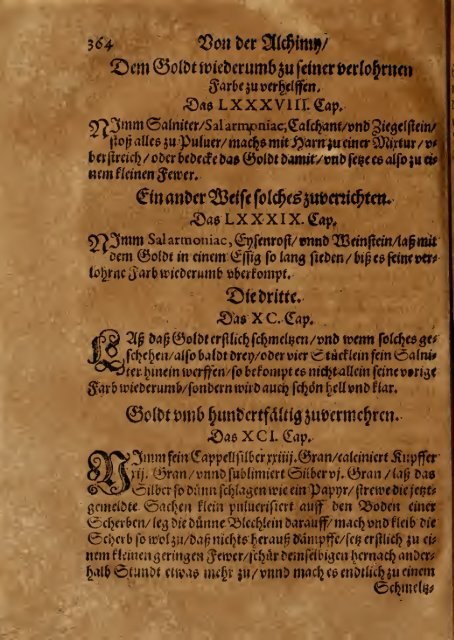 364 Von der Alchimy/
Dem Goldt wiederumb zu seiner verlohrnen
Farbe zu verhelffen.
Das LXXXVIII. Cap.
NJmm Salniter/Salarmoniac, Calchant/vnd Ziegelstein/
stoß alles zu Puluer/machs mit Harn zu einer Mixtur/v-
berstreich/oder bedecke das Goldt damit/vnd setze es also zu ei-
nem kleinen Fewer.
Ein ander Weise solches zuverrichten.
Das LXXXIX. Cap.
NJmm Salarmoniac, Eysenrost/vnnd Weinstein/laß mit
dem Goldt in einem Essig so lang sieden/biß es seine ver-
lohrne Farb wiederumb vberkompt.
Die dritte.
Das XC. Cap.
LAß daß Goldt erstlich schmeltzen/vnd wenn solches ge-
schehen/also baldt drey/oder vier Stücklein fein Salni-
ter hinein werffen/so bekompt es nicht allein seine vorige
Farb wiederumb/sondern wird auch schön hell vnd klar.
Goldt vmb hundertfältig zuvermehren.
Das XCI. Cap.
NJmm fein Cappellsilber xxiiij. Gran/calciniert Kupffer
xij. Gran/vnnd sublimiert Silber vj. Gran/laß das
Silber so dünn schlagen wie ein Papyr/strewe die jetzt-
gemeldte Sachen klein pulverisiert auff den Boden einer
Scherben/leg die dünne Blechlein darauff/mach vnd kleib die
Scherb so wol zu/daß nichts herauß dämpffe/setz erstlich zu ei-
nem kleinen geringen Fewer/schür demselbigen hernach ander-
halb Stundt etwas mehr zu/vnnd mach es endtlich zu einem
Schmeltz-